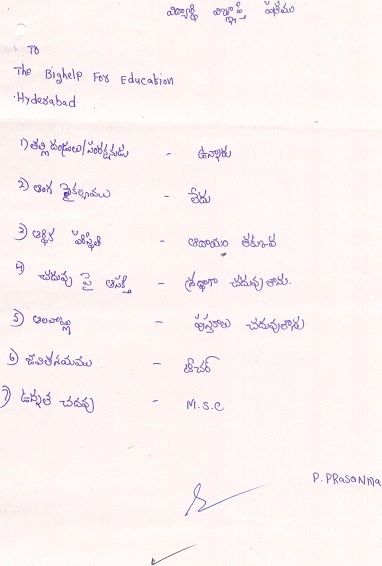 విద్యార్థి విజ్ఞప్తి పత్రము
TO
The Bighelp For Education
Hyderabad
1) తల్లిదండ్రులు/సంరక్షకుడు - ఉన్నారు
2) అంగ వైకల్యము - లేదు
3) ఆర్థిక పరిస్థితి - ఆదాయం తక్కువ
4) చదువు పై ఆసక్తి - శ్రద్ధగా చదువుతాను.
5) అలవాట్లు - పుస్తకాలు చదువుతాను
6) జీవితాశయము - టీచర్
7) ఉన్నత చదువు - M.S.C
P. PRASONNA